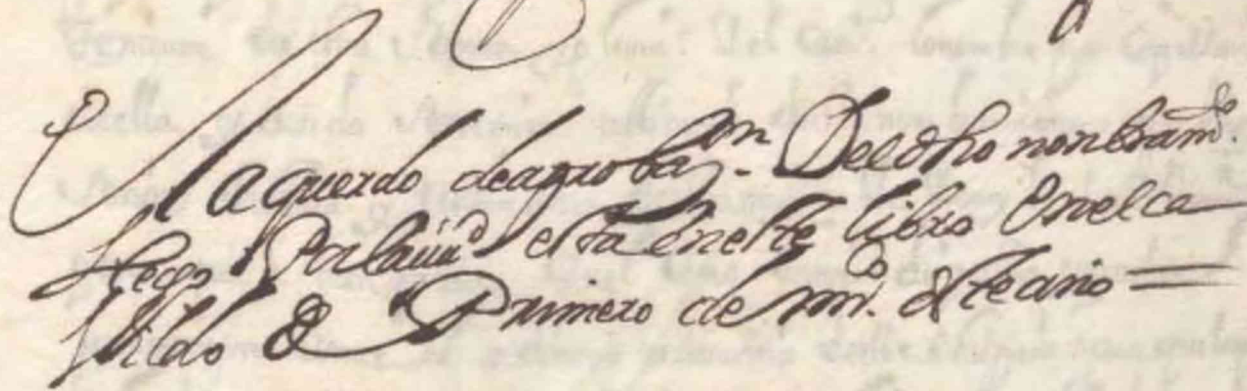 el aquerdo deaprobaçon. Deedho nonbramto.
Hecho Porlaciud esta eneste libro Enelca
bildo de Primero de mco. desteaño =